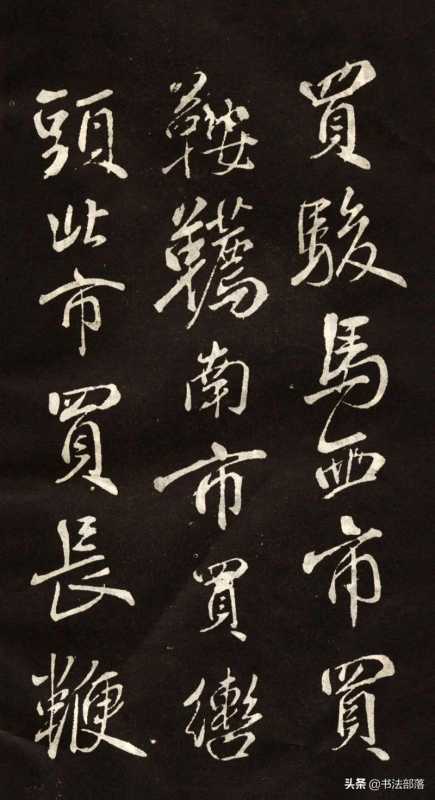 買駿馬西市買
鞍韉南市買轡
頭北市買長鞭
头条 @书法部落